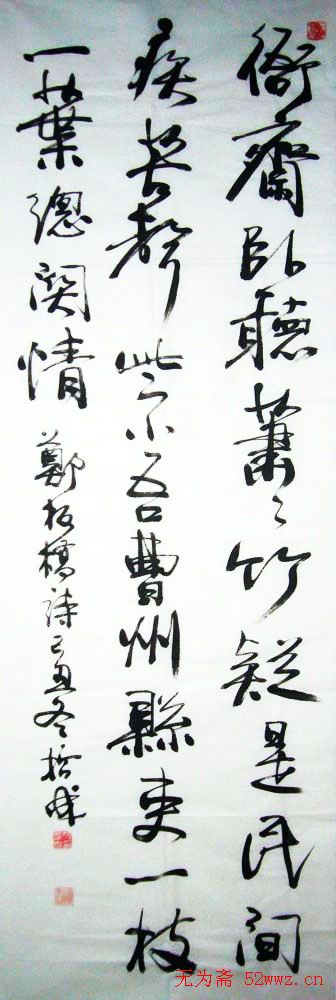 衙齋卧聽蕭々竹疑是民間
疾苦聲些小吾曹州縣吏一枝
一葉總關情鄭板橋詩己丑冬
无为斋 52wwz.cn